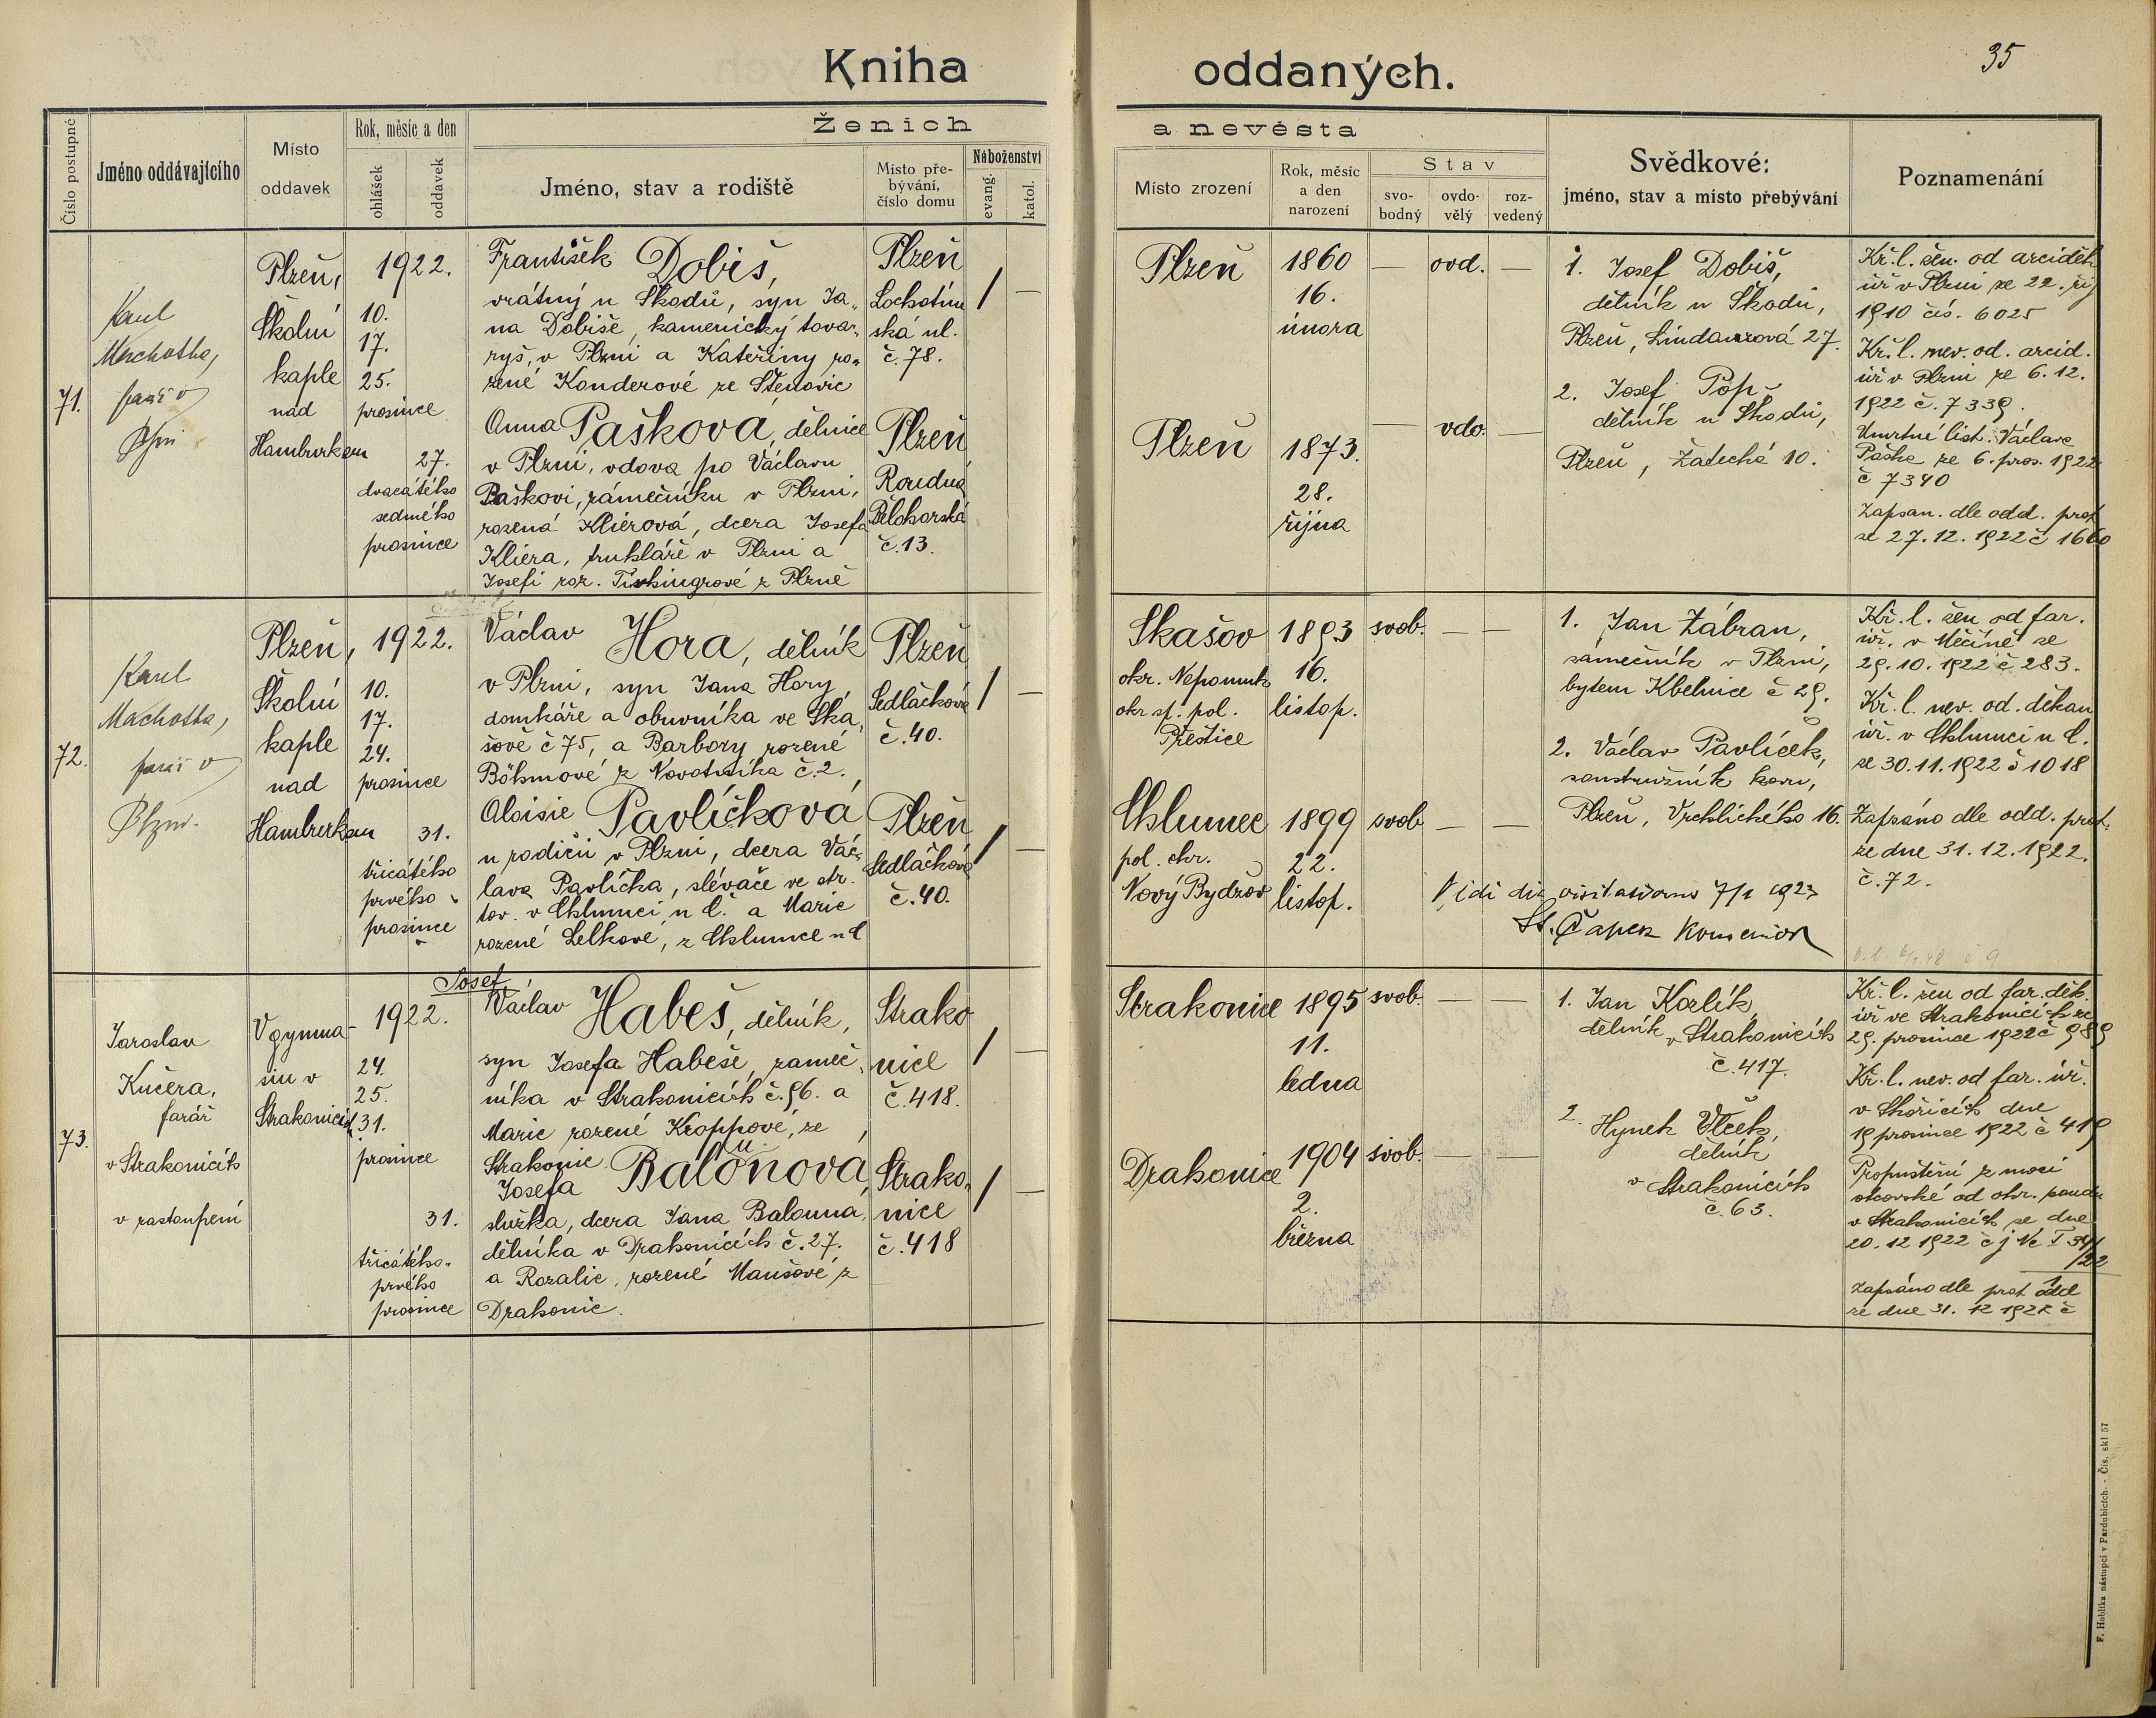 Kniha oddaných.
35
Číslo postupné
Jméno oddávajícího
Místo
oddavek
Rok, měsíc a den
ohlášek
oddavek
Ženich
a nevěsta
Jméno, stav a rodiště
Místo pře-
bývání,
číslo domu
Náboženství
evang.
katol.
Místo zrození
Rok, měsíc
a den
narození
Stav
svo-
bodný
ovdo-
vělý
roz-
vedený
Svědkové:
jméno, stav a místo přebývání
Poznamenání
71.
Karel
Machotka,
farář v
Plzni
Plzeň,
Školní
kaple
nad
Hamburkem
1922.
10.
17.
25.
prosince
27.
dvacátého
sedmého
prosince
František Dobiš,
vrátný u Škodů, syn Ja-
na Dobiše, kamenický tovar-
ryš, v Plzni a Kateřiny ro-
zené Konderové ze Štěnovic
Plzeň
Lochotín-
ská ul.
č. 78.
/ —
Anna Pašková, dělnice
v Plzni, vdova po Václavu
Paškovi, zámečníku v Plzni,
rozená Kliérová, dcera Josefa
Kliera, truhláře v Plzni a
Josefi roz. Tischingrové z Plzně
Plzeň
Roudná
Bělohorská
č. 13.
Plzeň
1860
16.
února
— ovd. —
Plzeň
1873.
28.
října
— vdo. —
1. Josef Dobiš,
dělník u Škodů,
Plzeň, Lindaurová 27.
2. Josef Pop
dělník u Škodů,
Plzeň, Žatecká 10.
Kř. l. žen. od arciděk
úř v Plzni ze 22. říj
1910 čís. 6025
Kř. l. nev. od. arcid.
úř v Plzni ze 6. 12.
1922 č. 7339.
Úmrtní list. Václava
Paška ze 6. pros. 1922
č 7340
Zapsan. dle odd. prot
ze 27. 12. 1922 č 1660
72.
Karel
Machotka,
farář v
Plzni.
Plzeň,
Školní
kaple
nad
Hamburkem
1922.
10.
17.
24.
prosince
31.
třicátého
prvého
prosince
Václav Hora, dělník
v Plzni, syn Jana Hory
domkáře a obuvníka ve Ska-
šově č 75, a Barbory rozené
Böhmové z Novotníka č. 2.
Plzeň
Sedláčkova
č. 40.
/ —
Aloisie Pavlíčková
u rodičů v Plzni, dcera Vác-
lava Pavlíčka, slévače ve str.
tov. v Chlumci n C. a Marie
rozené Lelkové, z Chlumce n C
Plzeň
Sedláčkova
č. 40.
/ —
Skašov
okr. Nepomuk
okr sf. pol.
Přeštice
1893
16.
listop.
svob. — —
Chlumec
pol. okr.
Nový Bydžov
1899
22.
listop.
svob — —
1. Jan Zábran,
zámečník v Plzni,
bytem Kbelnice č 29.
2. Václav Pavlíček,
soustružník kovu,
Plzeň, Vrchlického 16.
St. Čapek
Kř. l. žen od far.
úř. v Měčíně ze
29. 10. 1922 č 283.
Kř. l. nev. od. děkan
úř. v Chlumci n C.
ze 30. 11. 1922 č 1018
Zapsáno dle odd. prot.
ze dne 31. 12. 1922.
č. 72.
73.
Jaroslav
Kučera,
farář
v Strakonicích
v zastoupení
V gymna-
siu v
Strakonicích
1922.
24.
25.
31.
prosince
31.
třicátého-
prvého
prosince
Josef
Václav Habeš, dělník,
syn Josefa Habeše, zámeč-
níka v Strakonicích č. 96. a
Marie rozené Kroppové, ze
Strakonic
Strako
nice
č. 418.
/ —
u
Josefa Balónová,
služka, dcera Jana Balouna,
dělníka v Drahonicích č. 27.
a Rozalie, rozené Maušové z
Drahonic.
Strako-
nice
č. 418
/ —
Strakonice
1895
11.
ledna
svob. — —
Drahonice
1904
2.
března
svob. — —
1. Jan Kozlík,
dělník v Strakonicích
č. 417.
2. Hynek Vlček,
dělník
v Strakonicích
č. 63.
Kř. l. žen od far. děk.
úř ve Strakonicích ze
29. prosince 1922 č 989
Kř. l. nev. od far. úř.
v Skočicích dne
19 prosince 1922 č 419
Propuštění z moci
otcovské od okr. soudu
v Strakonicích ze dne
20. 12 1922 č j Nc I 391
/22
Zapsáno dle prot odd
ze dne 31. 12 1922 č
F. Hoblíka nástupci v Pardubicích. - Čís. skl 57